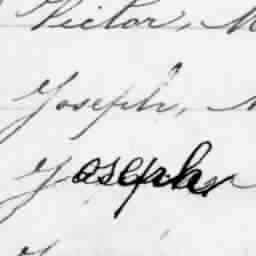 Victor, M
Joseph,
Joseph